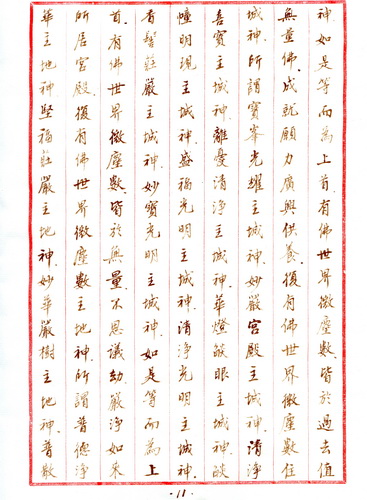 神如是等而為上首有佛世界微塵數皆於過去值
無量佛成就願力廣興供養復有佛世界微塵數住
城神所謂寶峯光耀主城神妙嚴宮殿主城神清淨
喜寶主城神離憂清淨主城神華燈燄眼主城神燄
幢明現主城神盛福光明主城神清淨光明主城神
香髻莊嚴主城神妙寶光明主城神如是等而為上
首有佛世界微塵數皆於無量不思議劫嚴淨如來
所居宮殿復有佛世界微塵數主地神所謂普德淨
華主地神堅福莊嚴主地神妙華嚴樹主地神普散
·11·